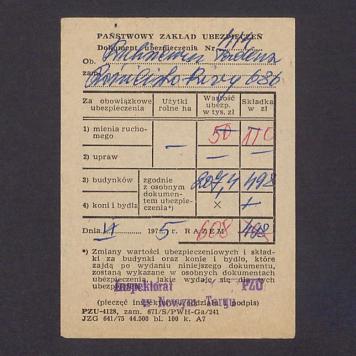 PAŃSTWOWY ZAKŁAD UBEZPIECZEŃ
Dokument ubezpieczenia Nr 414
Ob.
zam.
Za obowiązkowe ubezpieczenia
Użytki rolne ha
Wartość ubezp. w tys. zł
Składka w zł
1) mienia rucho-
mego
— 50 110
2) upraw — —
3) budynków
zgodnie z osobnym dokumen-
tem ubezpie-
czenia*)
207,4 498
4) koni i bydła × +
Dnia 197 5 r. RAZEM 608 498
*) Zmiany wartości ubezpieczeniowych i skład-
ki za budynki oraz konie i bydło, które
zajdą po wydaniu niniejszego dokumentu,
zostaną wykazane w osobnych dokumentach
ubezpieczenia, jakie wydaje się
Inspektorat PZU
w Nowym Targu
(pieczęć podpis)
PZU-4128, zam. 671/S/PWH-Ga/241
JZG 641/75 44.500 bl. 100 k. A7